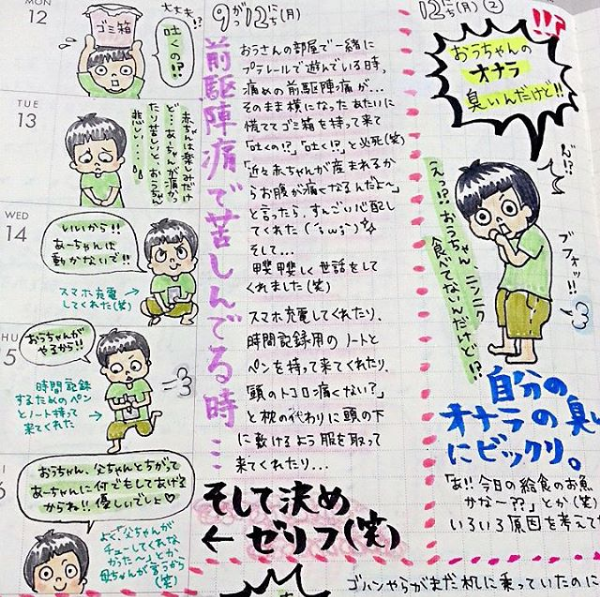 MON
12
大丈夫!?
吐くの!?
ゴミ箱
TUE
13
赤ちゃんは楽しみだけ
ど…あーちゃんが痛かっ
たり苦しいと、おうちゃん
悲しい…
WED
14
いいから!!
あーちゃんは
動かないで!!
スマホ充電
してくれた(笑)
THU
15
おうちゃんが
やるから!!
時間記録
するためのペン
とノート持って
来てくれた
おうちゃん、父ちゃんとちがって
あーちゃんに何でもしてあげる
からね!!優しいでしょ♡
よく、父ちゃんが
チューしてくれな
かった〜」とか
母ちゃんが言うから
(笑)
9がつ12にち(月)
前駆陣痛で苦しんでる時…
おうさんの部屋で一緒に
プラレールで遊んでいる時、
痛めの前駆陣痛が…
そのまま横になったあたいに
慌ててゴミ箱を持って来て
「吐くの!?」「吐く!?」と必死(笑)
「近々赤ちゃんが産まれるか
らお腹が痛くなるんだよ〜」
と言ったら、すんごい心配し
てくれた(´;ω;`)
そして…
甲斐甲斐しく世話をして
くれました(笑)
スマホ充電してくれたり、
時間記録用のノートと
ペンを持って来てくれたり、
「頭のトコロ痛くない?」
と枕の代わりに頭の下
に敷けるよう服を取って
来てくれたり…
そして決め
← ゼリフ(笑)
12にち(月)②
!!?
おうちゃんの
オナラ
臭いんだけど!!
ん!?
ブフォッ!!
(えっ!?おうちゃん ニンニク
食べてないんだけど!?
自分の
オナラの臭い
にビックリ。
「あ!!今日の給食のお魚
かな〜??」とか(笑)
いろいろ原因を考えて
ゴハンやらがまだ机に乗っていたのに